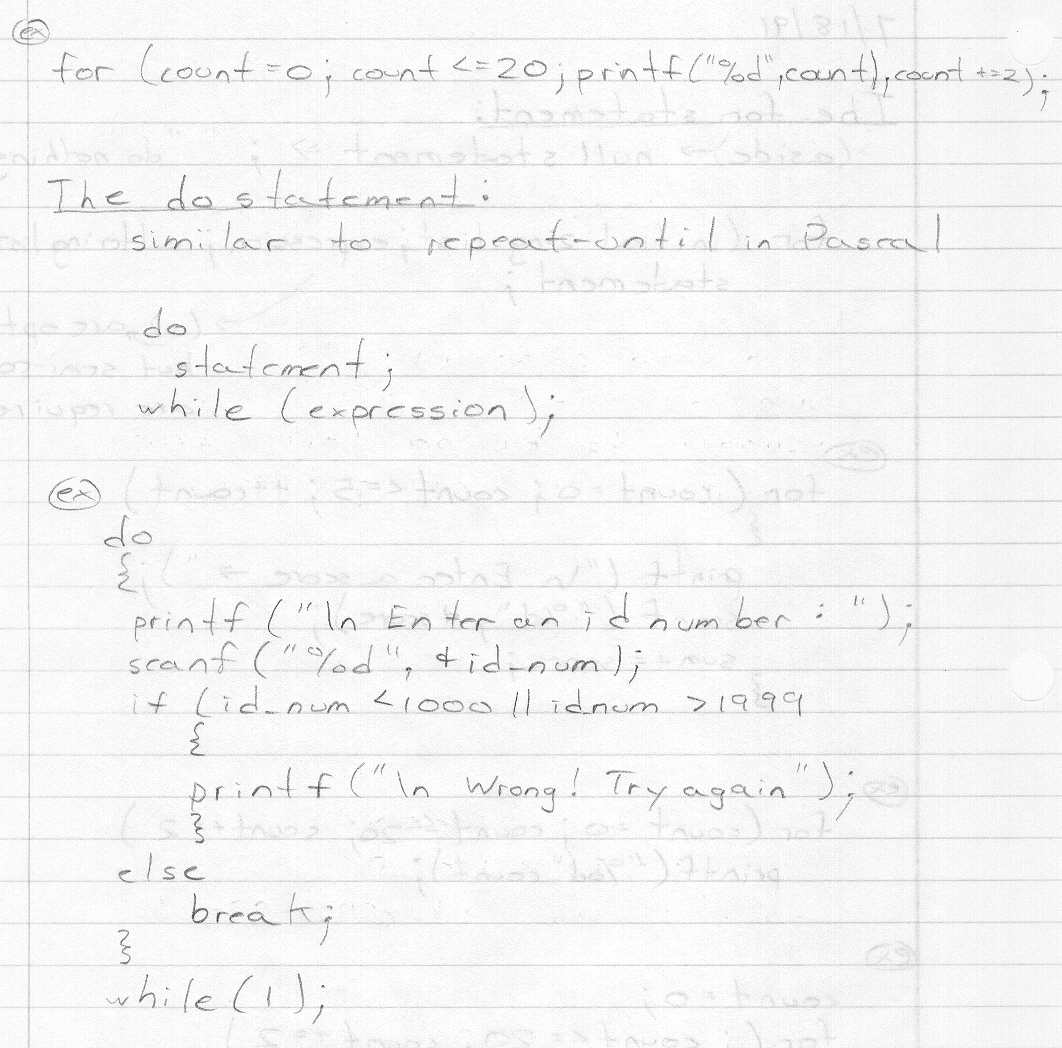 ex
for (count = 0; count <= 20; printf("%d",count), count +=2);
The do statement:
similar to repeat-until in Pascal
do
statement;
while (expression);
ex
do
{
printf ("\n Enter an id number : ");
scanf ("%d", &id_num);
if (id_num < 1000 || idnum > 1999
{
printf ("\n Wrong! Try again");
}
else
break;
}
while (1);